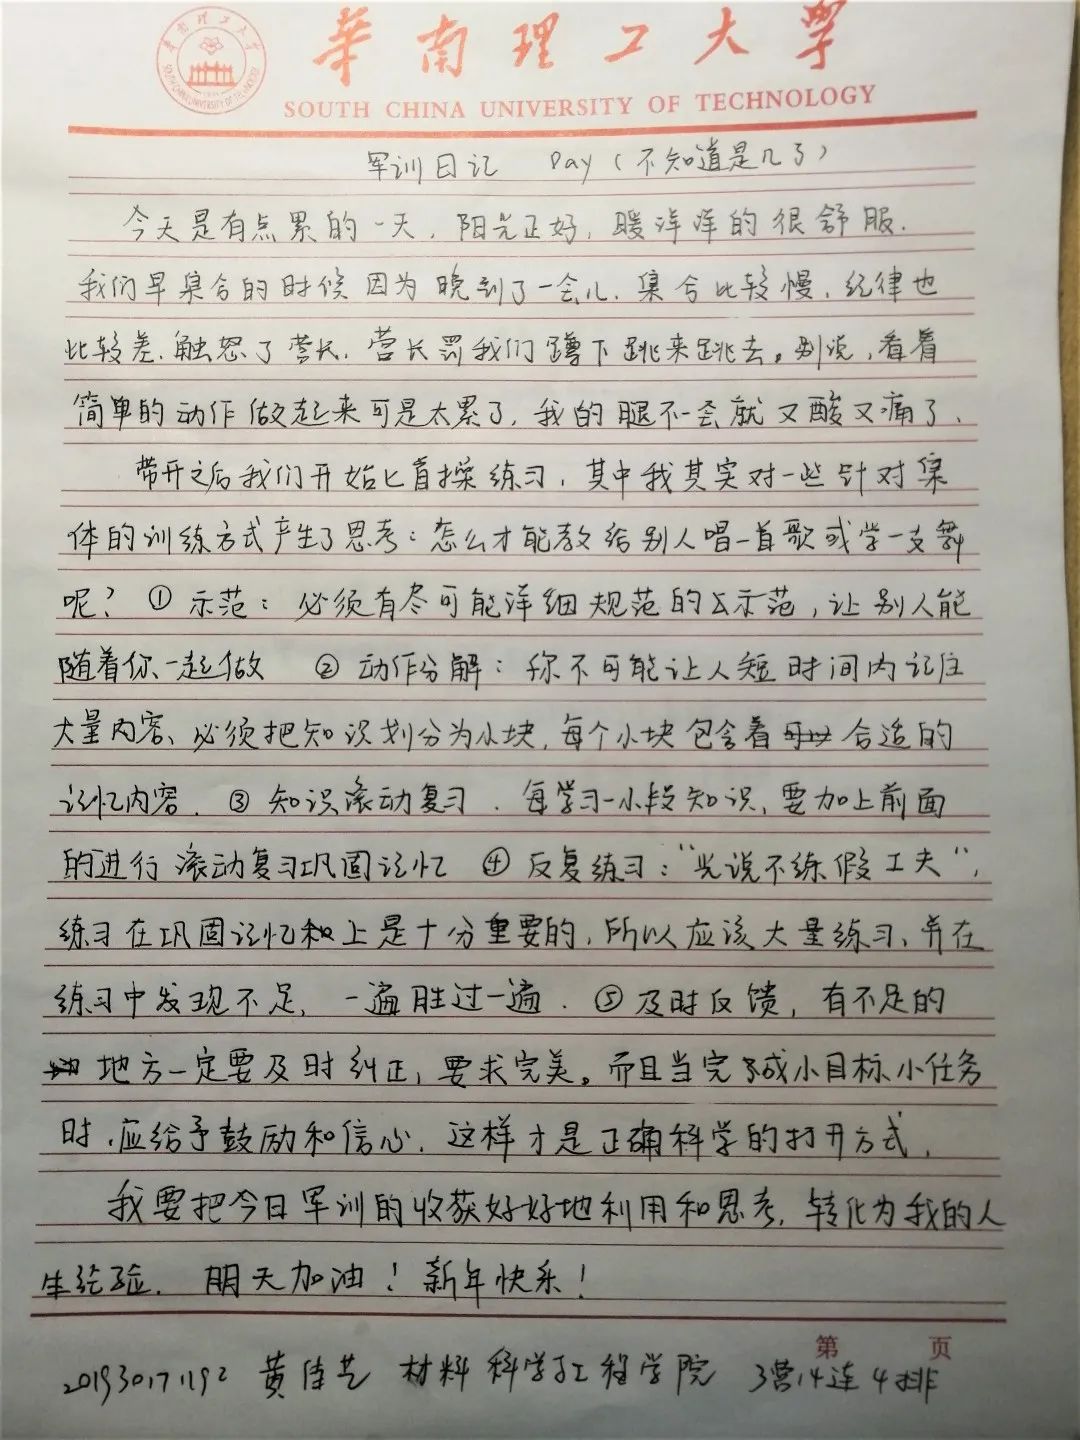 華南理工大学
SOUTH CHINA UNIVERSITY OF TECHNOLOGY
军训日记 Day（不知道是几了）
今天是有点累的一天，阳光正好，暖洋洋的很舒服.
我们早集合的时候因为晚到了一会儿.集合比较慢.纪律也
比较差.触怒了营长.营长罚我们蹲下跳来跳去。别说，看着
简单的动作做起来可是太累了,我的腿不一会就又酸又痛了.
带开之后我们开始匕首操练习,其中我其实对一些针对集
体的训练方式产生了思考：怎么才能教给别人唱一首歌或学一支舞
呢？①示范：必须有尽可能详细规范的示范，让别人能
随着你一起做 ②动作分解：你不可能让人短时间内记住
大量内容、必须把知识划分为小块,每个小块包含着合适的
记忆内容.③知识滚动复习.每学习一小段知识,要加上前面
的进行滚动复习巩固记忆 ④反复练习：“光说不练假工夫”,
练习在巩固记忆和上是十分重要的,所以应该大量练习、并在
练习中发现不足,一遍胜过一遍.⑤及时反馈，有不足的
地方一定要及时纠正,要求完美。而且当完成小目标小任务
时.应给予鼓励和信心.这样才是正确科学的打开方式.
我要把今日军训的收获好好地利用和思考,转化为我的人
生经验.明天加油！新年快乐！
第 页
201930171192 黄佳艺 材料科学与工程学院 3营14连4排